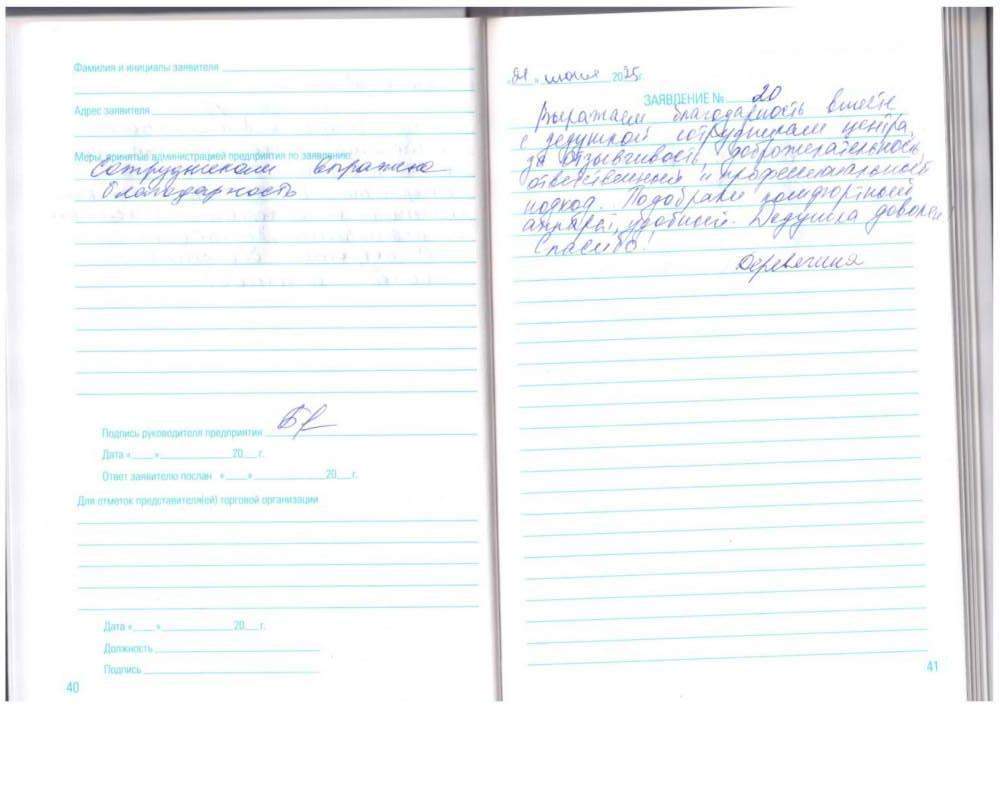 Фамилия и инициалы заявителя
Адрес заявителя
Меры, принятые администрацией предприятия по заявлению:
Сотрудникам выражена
благодарность
Подпись руководителя предприятия
Дата «___» ________ 20__ г.
Ответ заявителю послан «___» ________ 20__ г.
Для отметок представителя(ей) торговой организации
Дата «___» ________ 20__ г.
Должность
Подпись
40
«21» 2025г.
ЗАЯВЛЕНИЕ № 20
Выражаем благодарность вместе
с дедушкой сотрудникам центра,
за отзывчивость, доброжелательность,
ответственный и профессиональный
подход. Подобрали комфортный
аппарат, удобный. Дедушка доволен.
Спасибо!
Деревягина
41